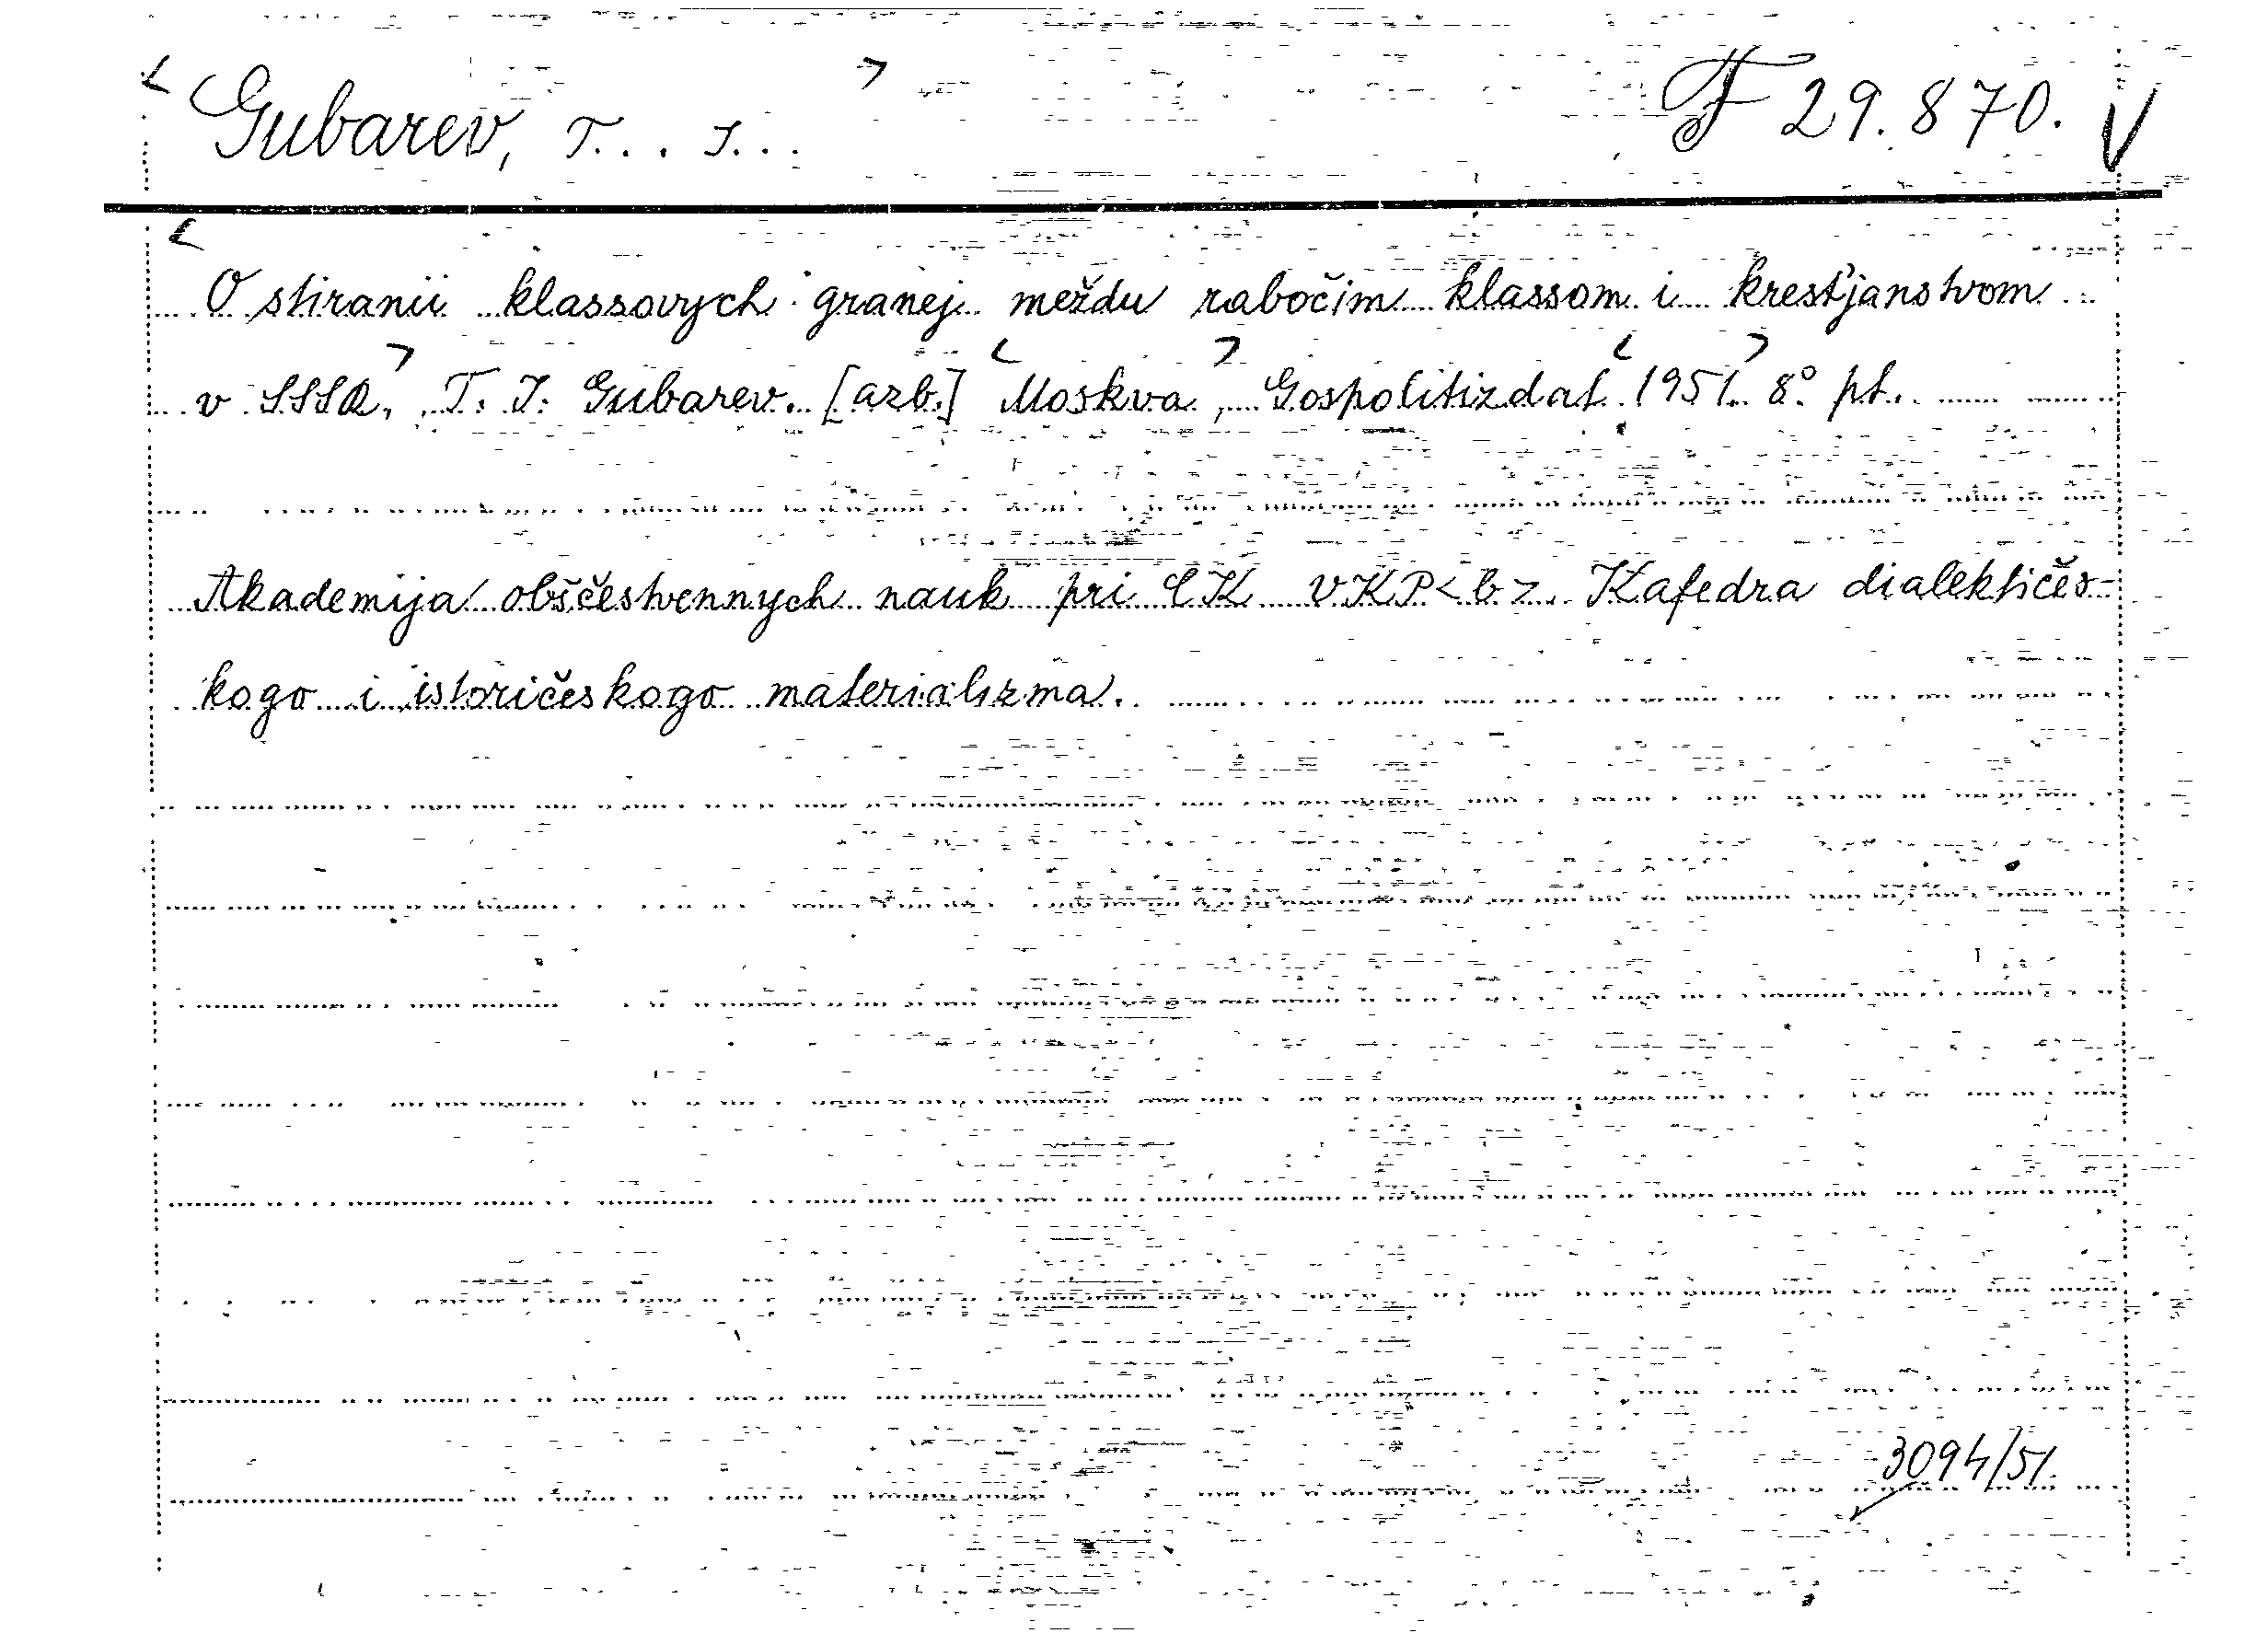 < Gubarev, T... I... > F 29.870. V
< O stiranii klassovych granej meždu rabočim klassom i krest'janstvom
v SSSR,> T. I. Gubarev. [azb.] <Moskva>, Gospolitizdat <1951>. 8° pt.
Akademija obščestvennych nauk pri CK VKP<b>. Kafedra dialektičes-
kogo i istoričeskogo materializma.
3094/51.